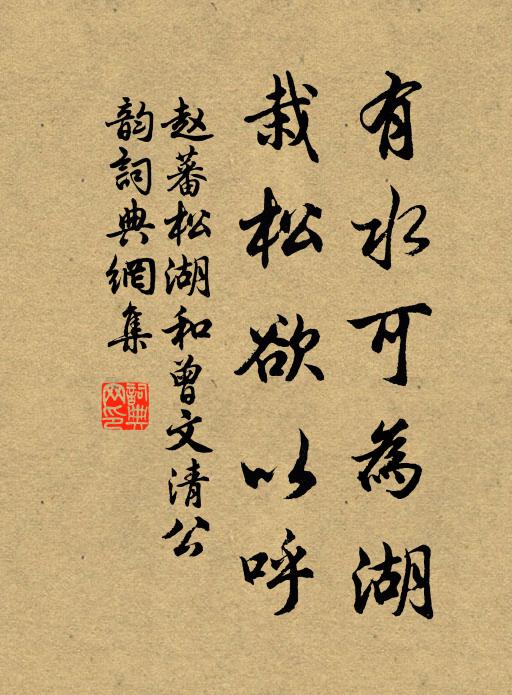 有水可為湖
栽松欲以呼
赵蕃松湖和曾文清公
韵詞典網集
詞典
网印